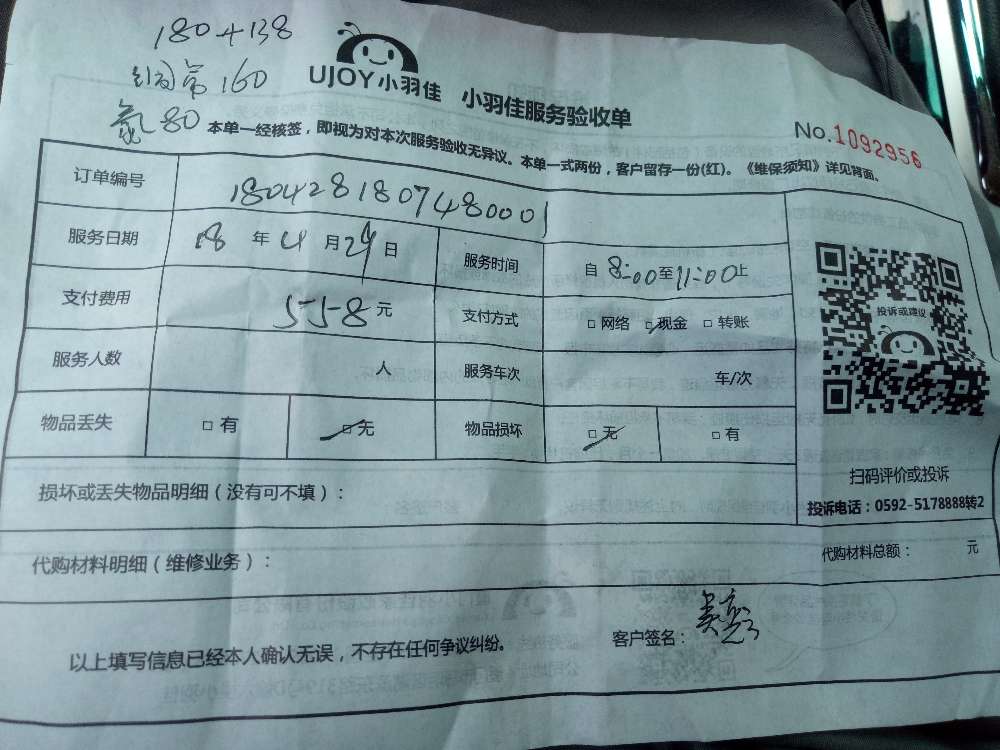 180+138
160
氟80
UJOY小羽佳 小羽佳服务验收单
No.1092956
本单一经核签，即视为对本次服务验收无异议。本单一式两份，客户留存一份(红)。《维保须知》详见背面。
订单编号 1804281807480001
服务日期 18 年 4 月 29 日 服务时间 自 8:00 至 11:00 止
支付费用 558 元 支付方式 □ 网络 □ 现金 □ 转账
投诉或建议
服务人数 人 服务车次 车/次
物品丢失 □ 有 □ 无 物品损坏 □ 无 □ 有
扫码评价或投诉
投诉电话：0592-5178888转2
损坏或丢失物品明细（没有可不填）：
代购材料明细（维修业务）：
代购材料总额： 元
以上填写信息已经本人确认无误，不存在任何争议纠纷。
客户签名：